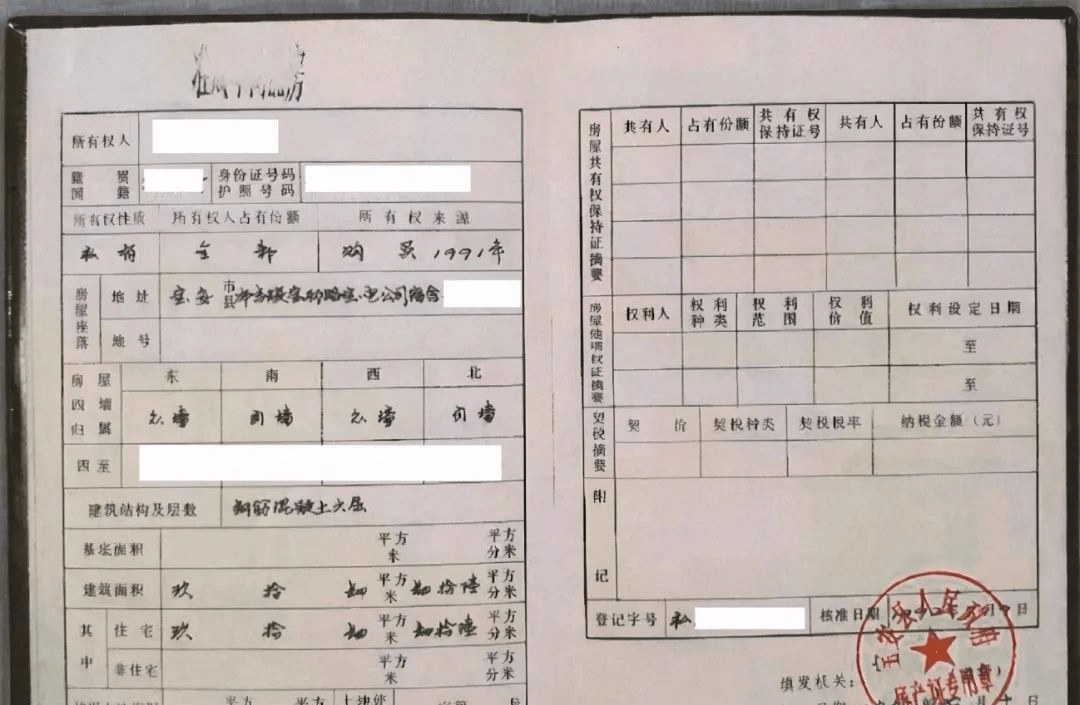 所有权人
籍贯 国籍 身份证号码 护照号码
所有权性质 所有权人占有份额 所有权来源
私有 全部 购买1991年
房屋座落 地址 宝安 市县
地号
房屋四墙归属 东 南 西 北
自墙 自墙
四至
建筑结构及层数 钢筋混凝土六层
基底面积 平方米 平方分米
建筑面积 玖 拾 平方米 拾陆 平方分米
其中 住宅 玖 拾 平方米 拾陆 平方分米
非住宅 平方米 平方分米
房屋共有权保持证摘要 共有人 占有份额 共有权保持证号 共有人 占有份额 共有权保持证号
权利人 权利种类 权利范围 权利价值 权利设定日期
至
至
契税摘要 契价 契税种类 契税税率 纳税金额(元)
附记
登记字号 私 核准日期 日
填发机关:
宝安县人民政府
房产证专用章